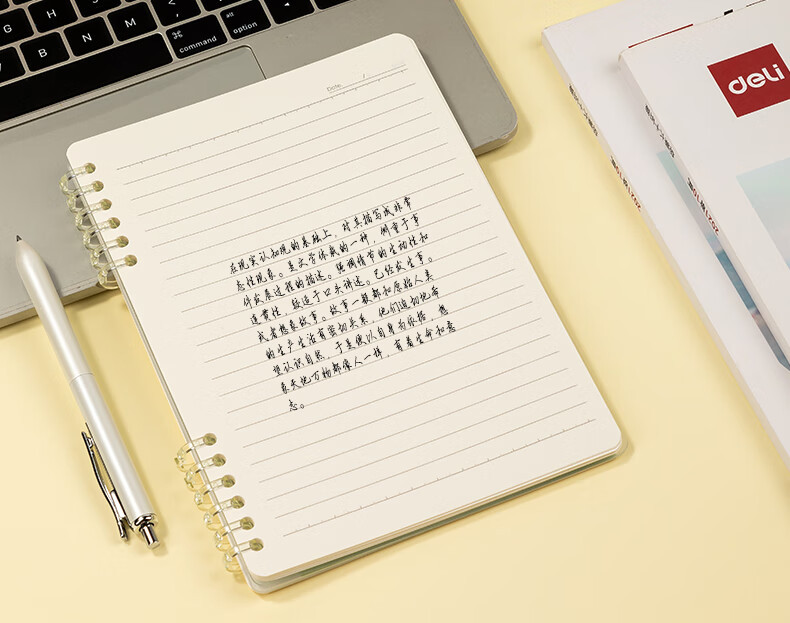 H
J
K
L
B
N
M
⌘
command
alt
option
Date
deli
在现实认知观的基础上，对其描写成非常
态性现象。是文学体裁的一种，侧重于事
件发展过程的描述。强调情节的生动性和
连贯性，较适于口头讲述。已经发生事。
或者想象故事。故事一般都和原始人类
的生产生活有密切关系，他们迫切地希
望认识自然，于是便以自身为依据，想
象天地万物都像人一样，有着生命和意
志。